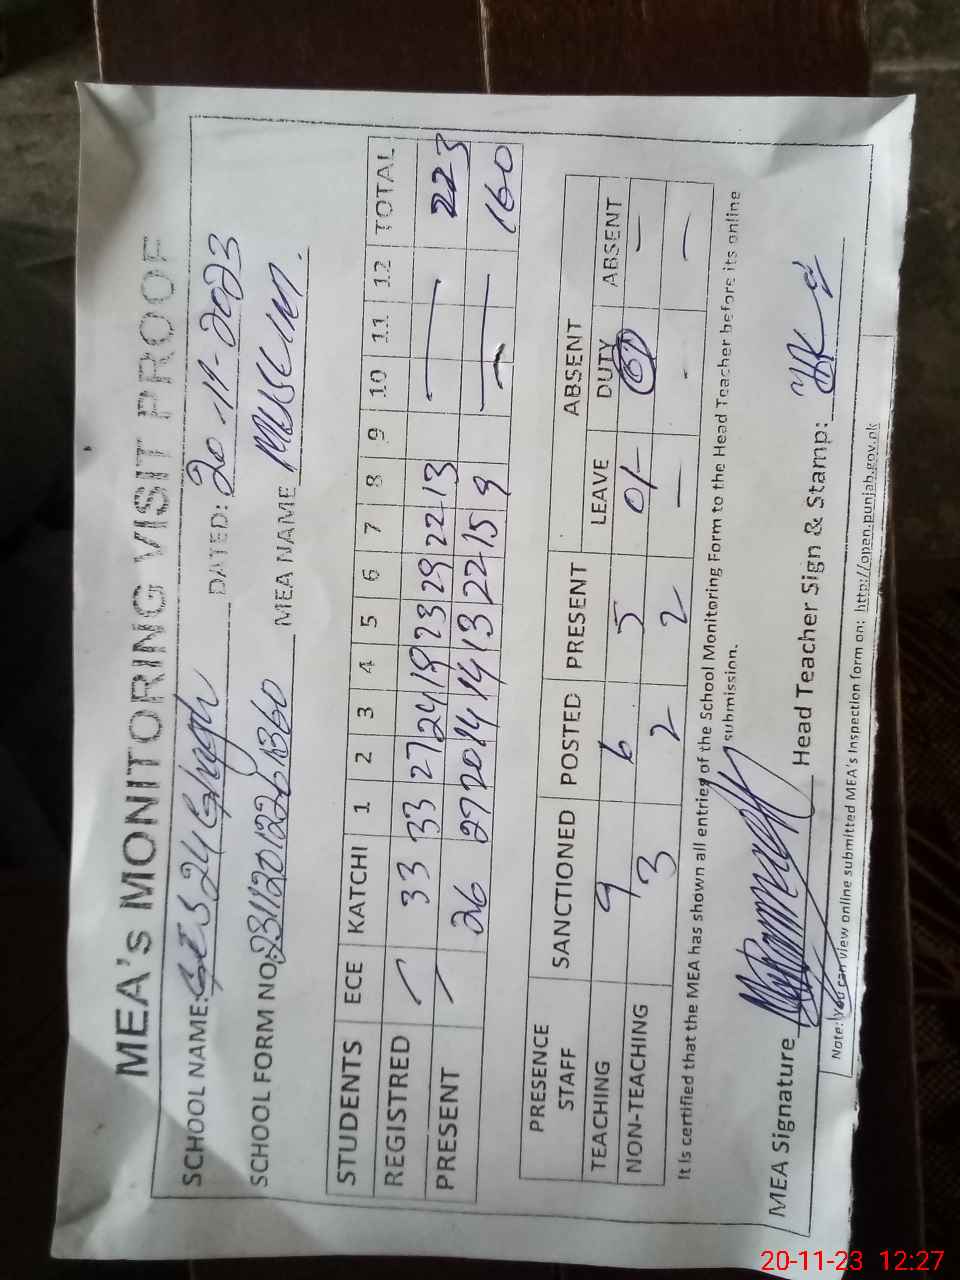 MEA's MONITORING VISIT PROOF
SCHOOL NAME: GES 24 Ghagh DATED: 20-11-2023
SCHOOL FORM NO: MEA NAME
STUDENTS ECE KATCHI 1 2 3 4 5 6 7 8 9 10 11 12 TOTAL
REGISTRED / 33 33 27 24 19 23 29 22 13 — 223
PRESENT / 26 27 20 14 14 13 22 15 9 — 160
PRESENCE STAFF SANCTIONED POSTED PRESENT LEAVE ABSENT DUTY ABSENT
TEACHING 9 6 5 01 —
NON-TEACHING 3 2 2 — - —
It is certified that the MEA has shown all entries of the School Monitoring Form to the Head Teacher before its online
submission.
MEA Signature Head Teacher Sign & Stamp:
Note: You can view online submitted MEA's Inspection form on: http://open.punjab.gov.pk
20-11-23 12:27